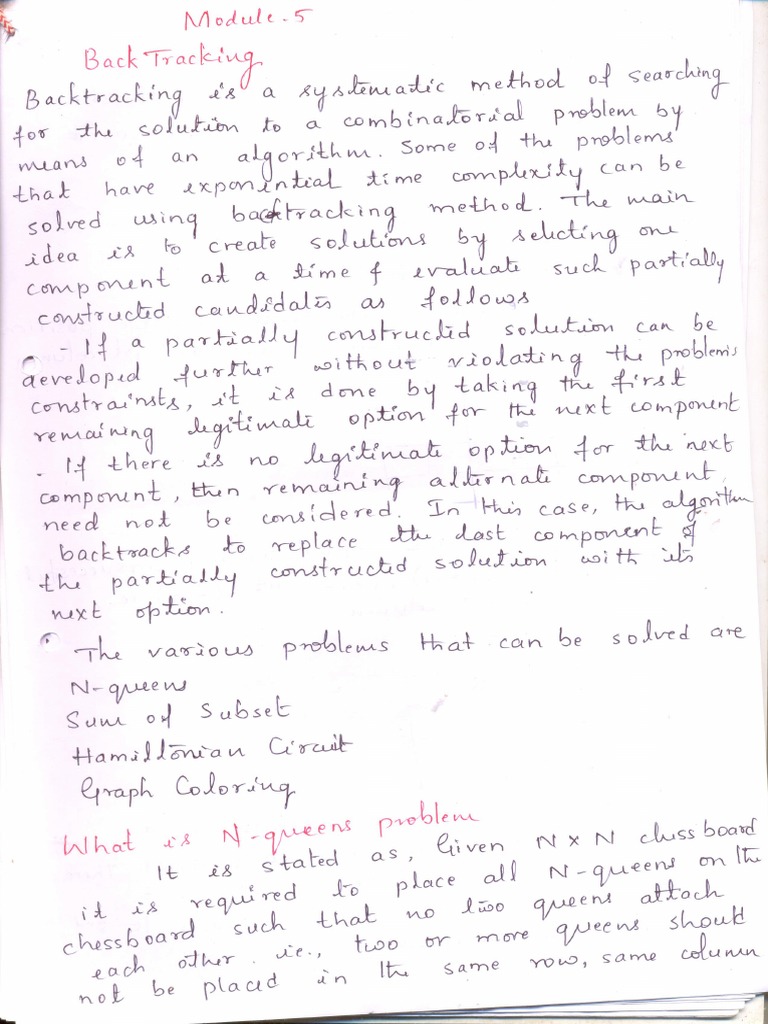 Module-5
BackTracking
Backtracking is a systematic method of searching
for the solution to a combinatorial problem by
means of an algorithm. Some of the problems
that have exponential time complexity can be
solved using backtracking method. The main
idea is to create solutions by selecting one
component at a time & evaluate such partially
constructed candidates as follows
- If a partially constructed solution can be
developed further without violating the problem's
constrainsts, it is done by taking the first
remaining legitimate option for the next component
- If there is no legitimate option for the next
component, then remaining alternate component
need not be considered. In this case, the algorithm
backtracks to replace the last component of
the partially constructed solution with its
next option.
The various problems that can be solved are
N-queens
Sum of Subset
Hamiltonian Circuit
Graph Coloring
What is N-queens problem
It is stated as, Given N x N chessboard
it is required to place all N-queens on the
chessboard such that no two queens attach
each other. ie., two or more queens should
not be placed in the same row, same column